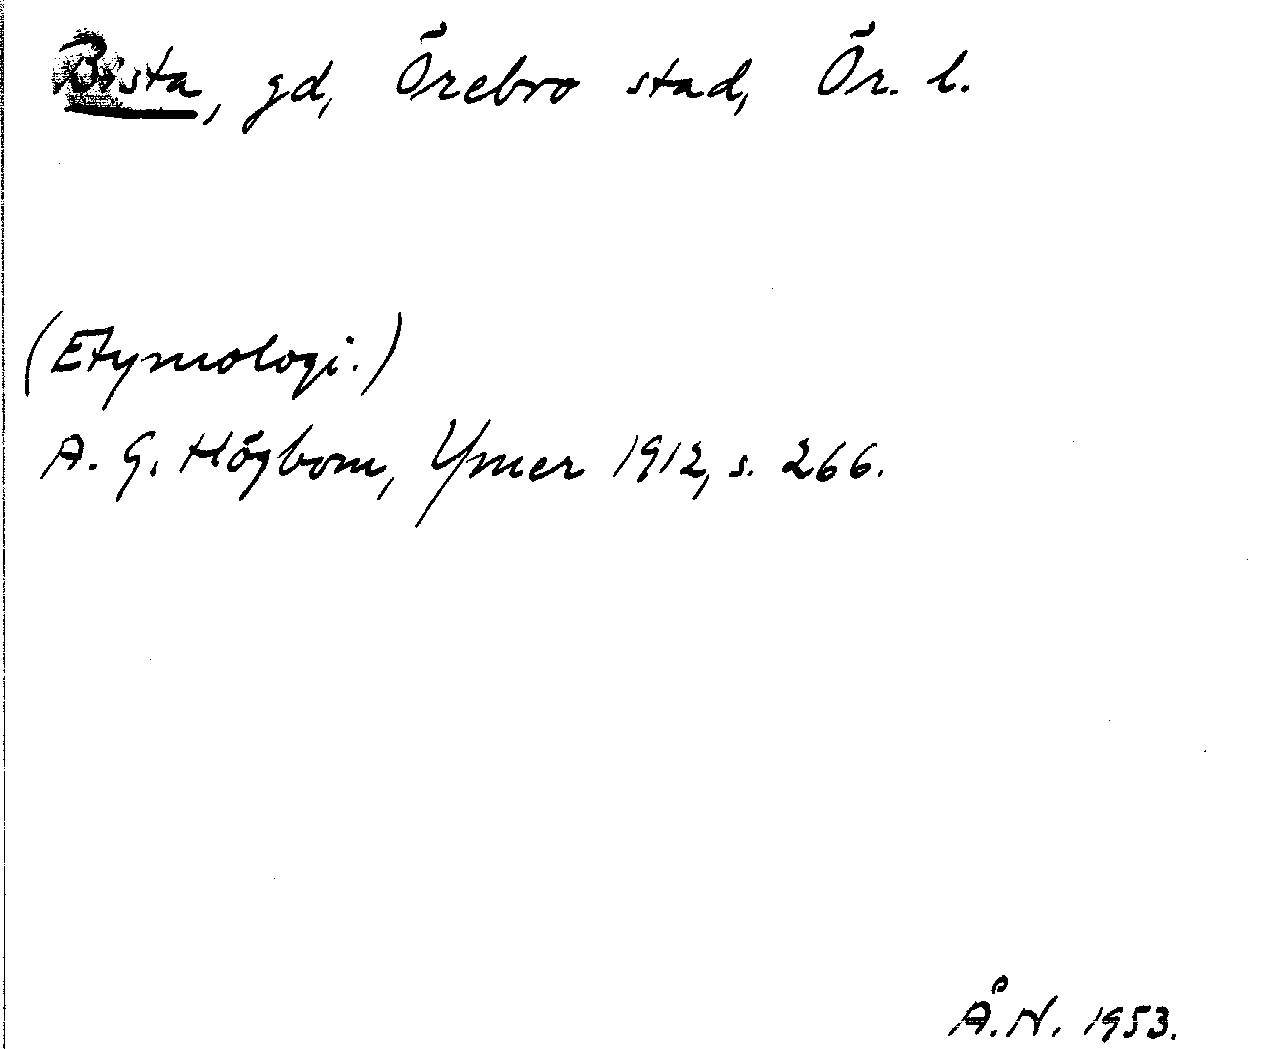 Bista, gd, Örebro stad, Ör. l.
(Etymologi.)
A. G. Högbom, Ymer 1912, s. 266.
Å.N. 1953.